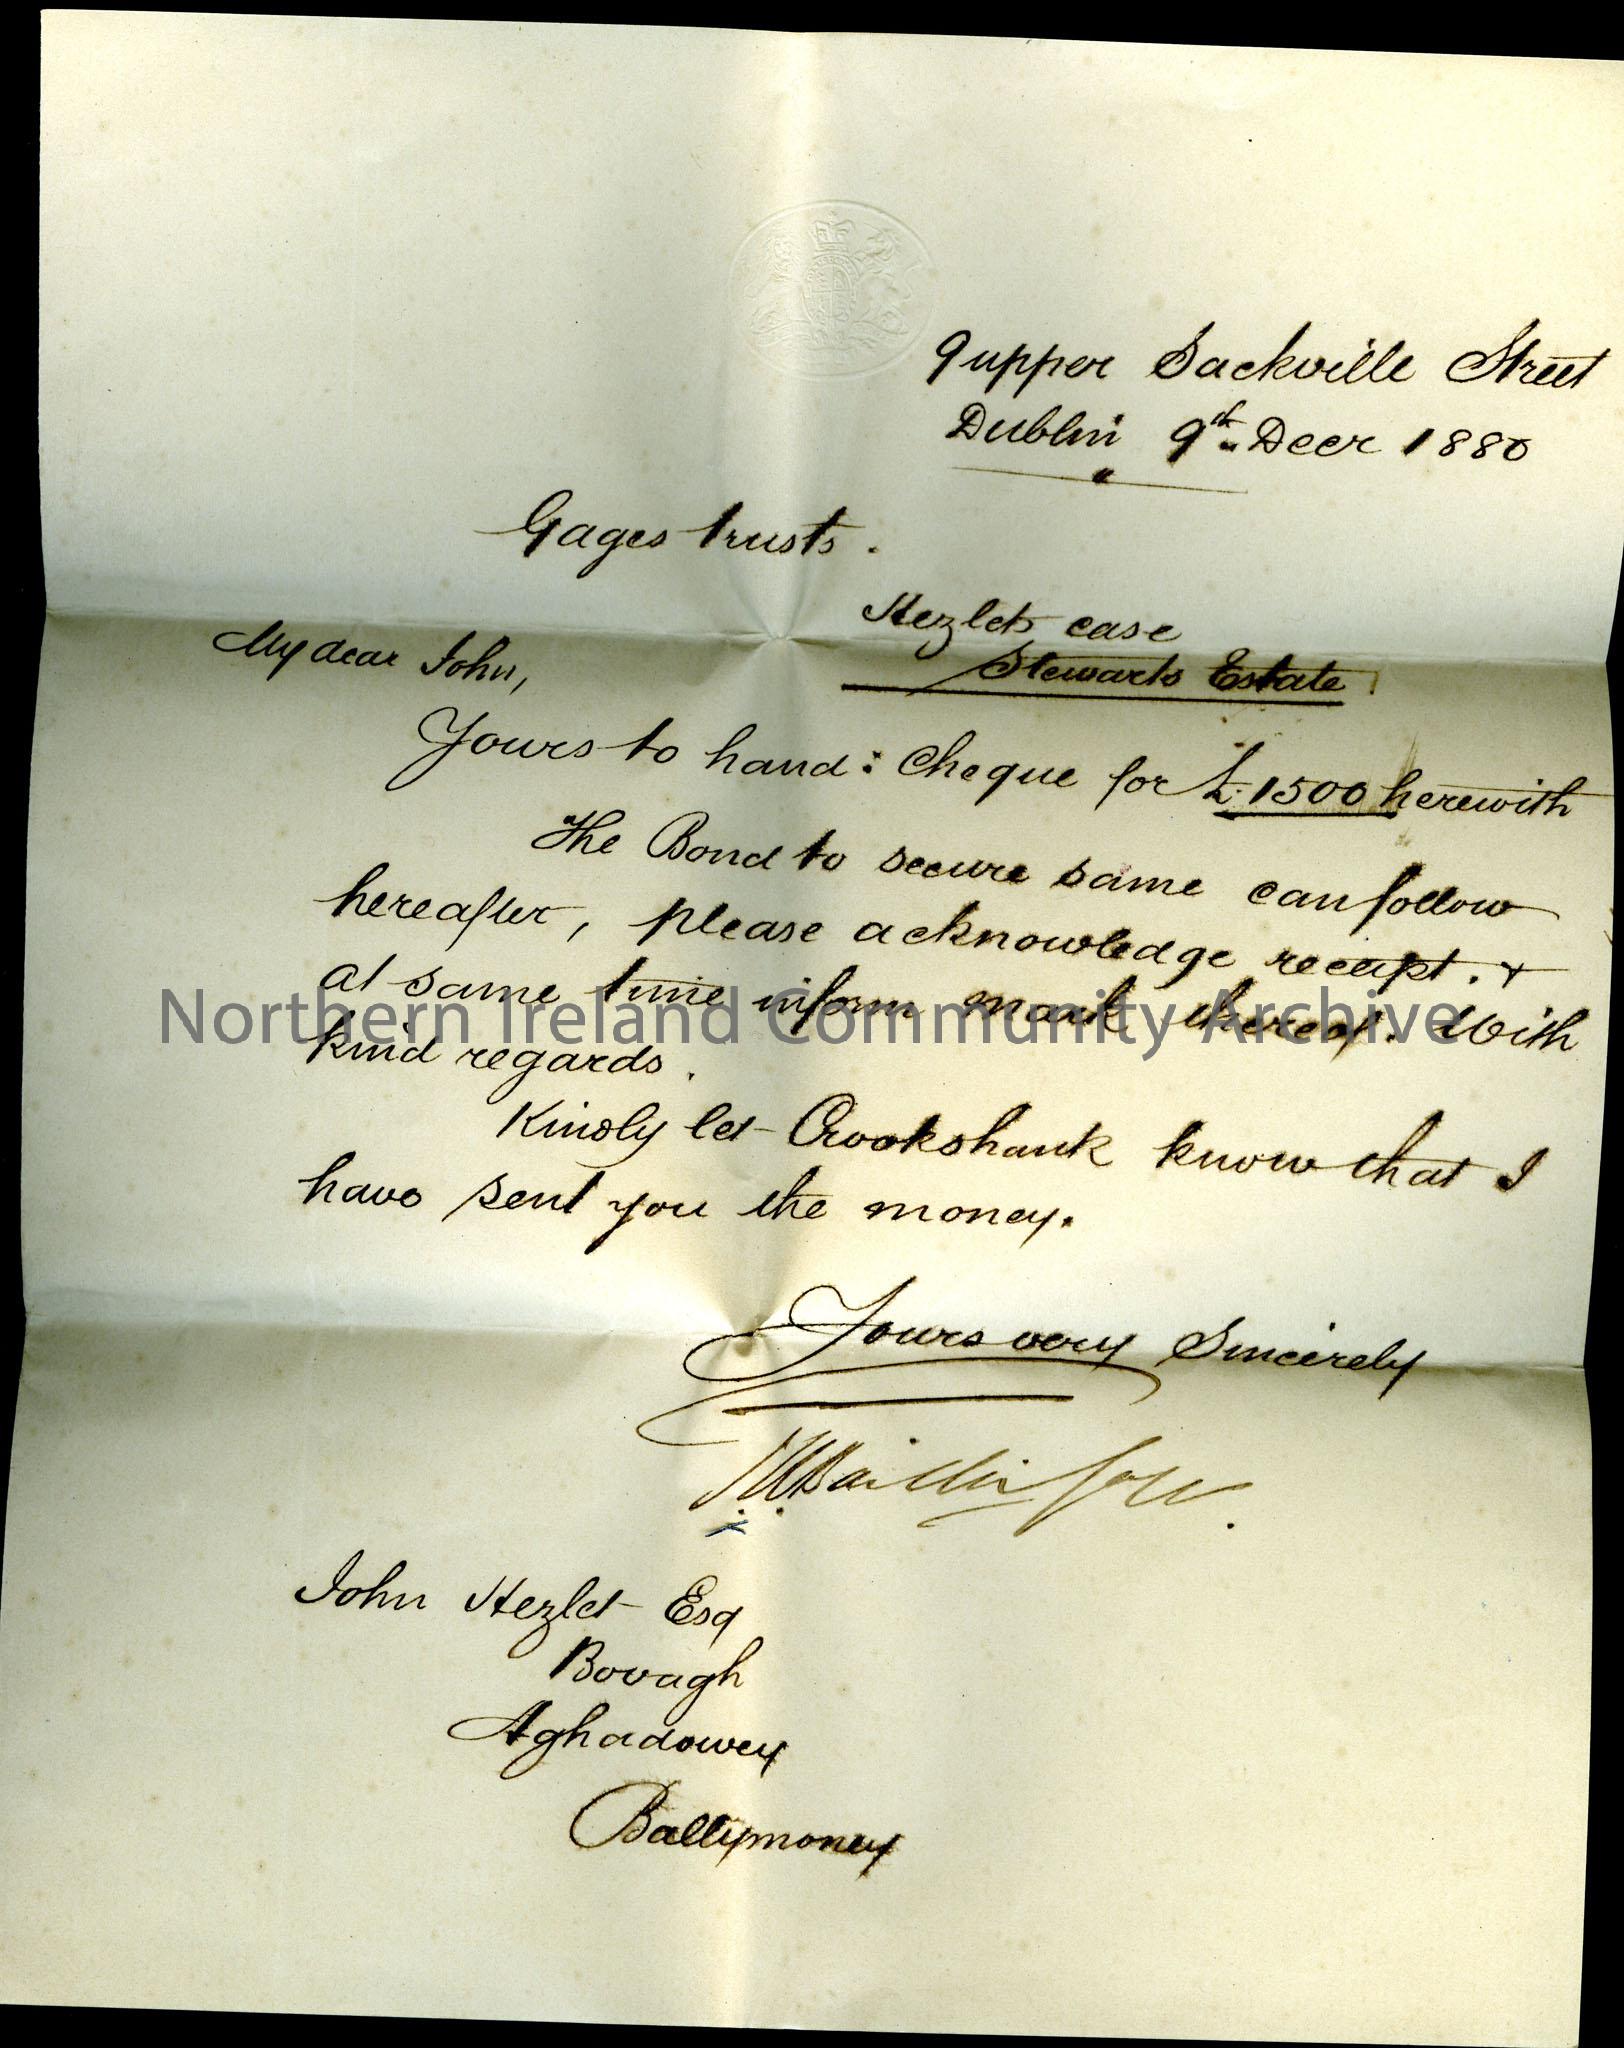 9 upper Sackville Street
Dublin 9th Decr 1880
Gages trusts.
Hezlets case
Stewarts Estate
My dear John,
Yours to hand: Cheque for £1500 herewith
The Bond to secure same can follow
hereafter, please acknowledge receipt. +
at same time inform Mark thereof. With
kind regards.
Kindly let Crookshank know that I
have sent you the money.
Yours very Sincerely
John Hezlet Esq
Bovagh
Aghadowey
Ballymoney
Northern Ireland Community Archive